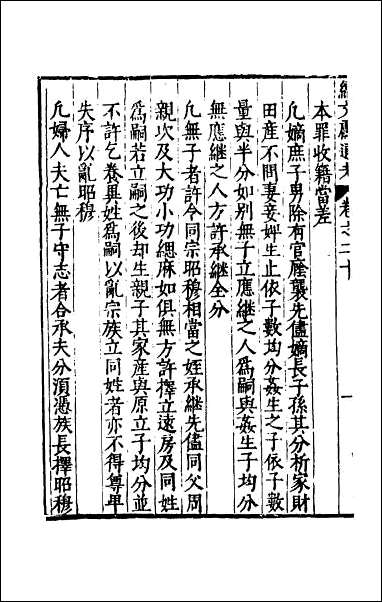 續文獻通考 卷之二十 一
本罪收籍當差
凡嫡庶子男除有官廕襲先儘嫡長子孫其分析家財
田產不問妻妾婢生止依子數均分姦生之子依子數
量與半分如別無子立應繼之人爲嗣與姦生子均分
無應繼之人方許承繼全分
凡無子者許令同宗昭穆相當之姪承繼先儘同父周
親次及大功小功緦麻如俱無方許擇立遠房及同姓
爲嗣若立嗣之後却生親子其家產與原立子均分並
不許乞養異姓爲嗣以亂宗族立同姓者亦不得尊卑
失序以亂昭穆
凡婦人夫亡無子守志者合承夫分須憑族長擇昭穆